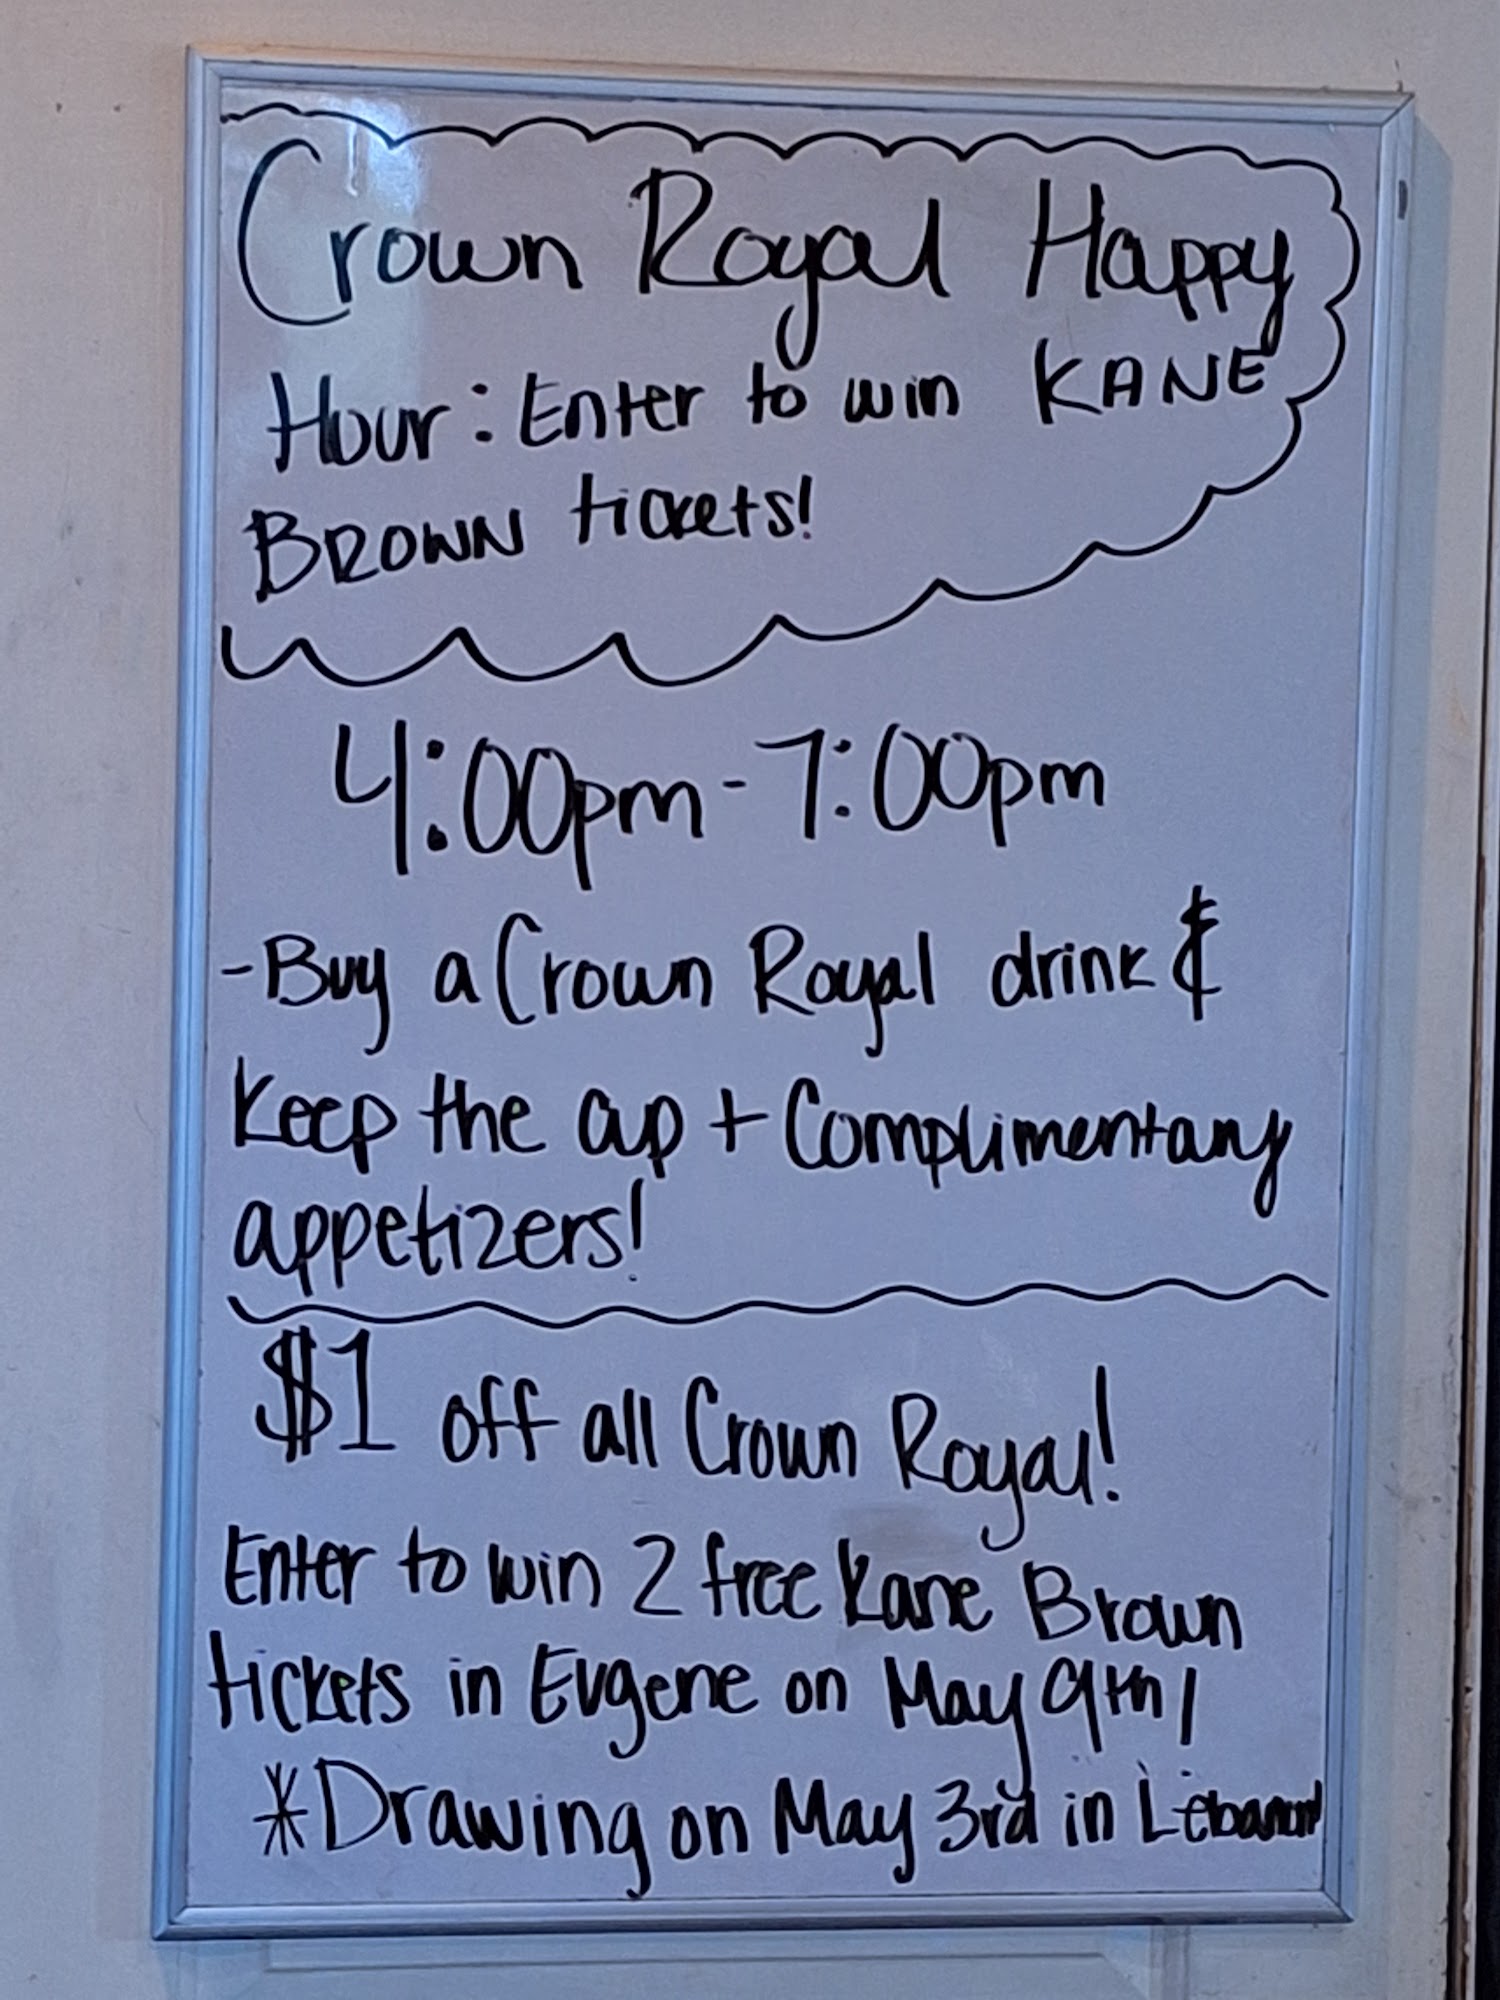 Crown Royal Happy
Hour: Enter to win KANE
BROWN tickets!
4:00pm-7:00pm
-Buy a Crown Royal drink &
Keep the cup + Complimentary
appetizers!
$1 off all Crown Royal!
Enter to win 2 free Kane Brown
tickets in Eugene on May 9th!
*Drawing on May 3rd in Lebanon!